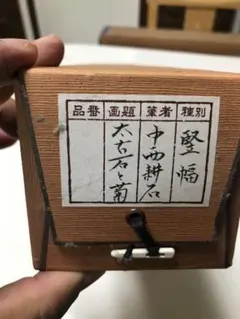 種別
竪一幅
筆者
中西耕石
画題
太古石と菊
品番